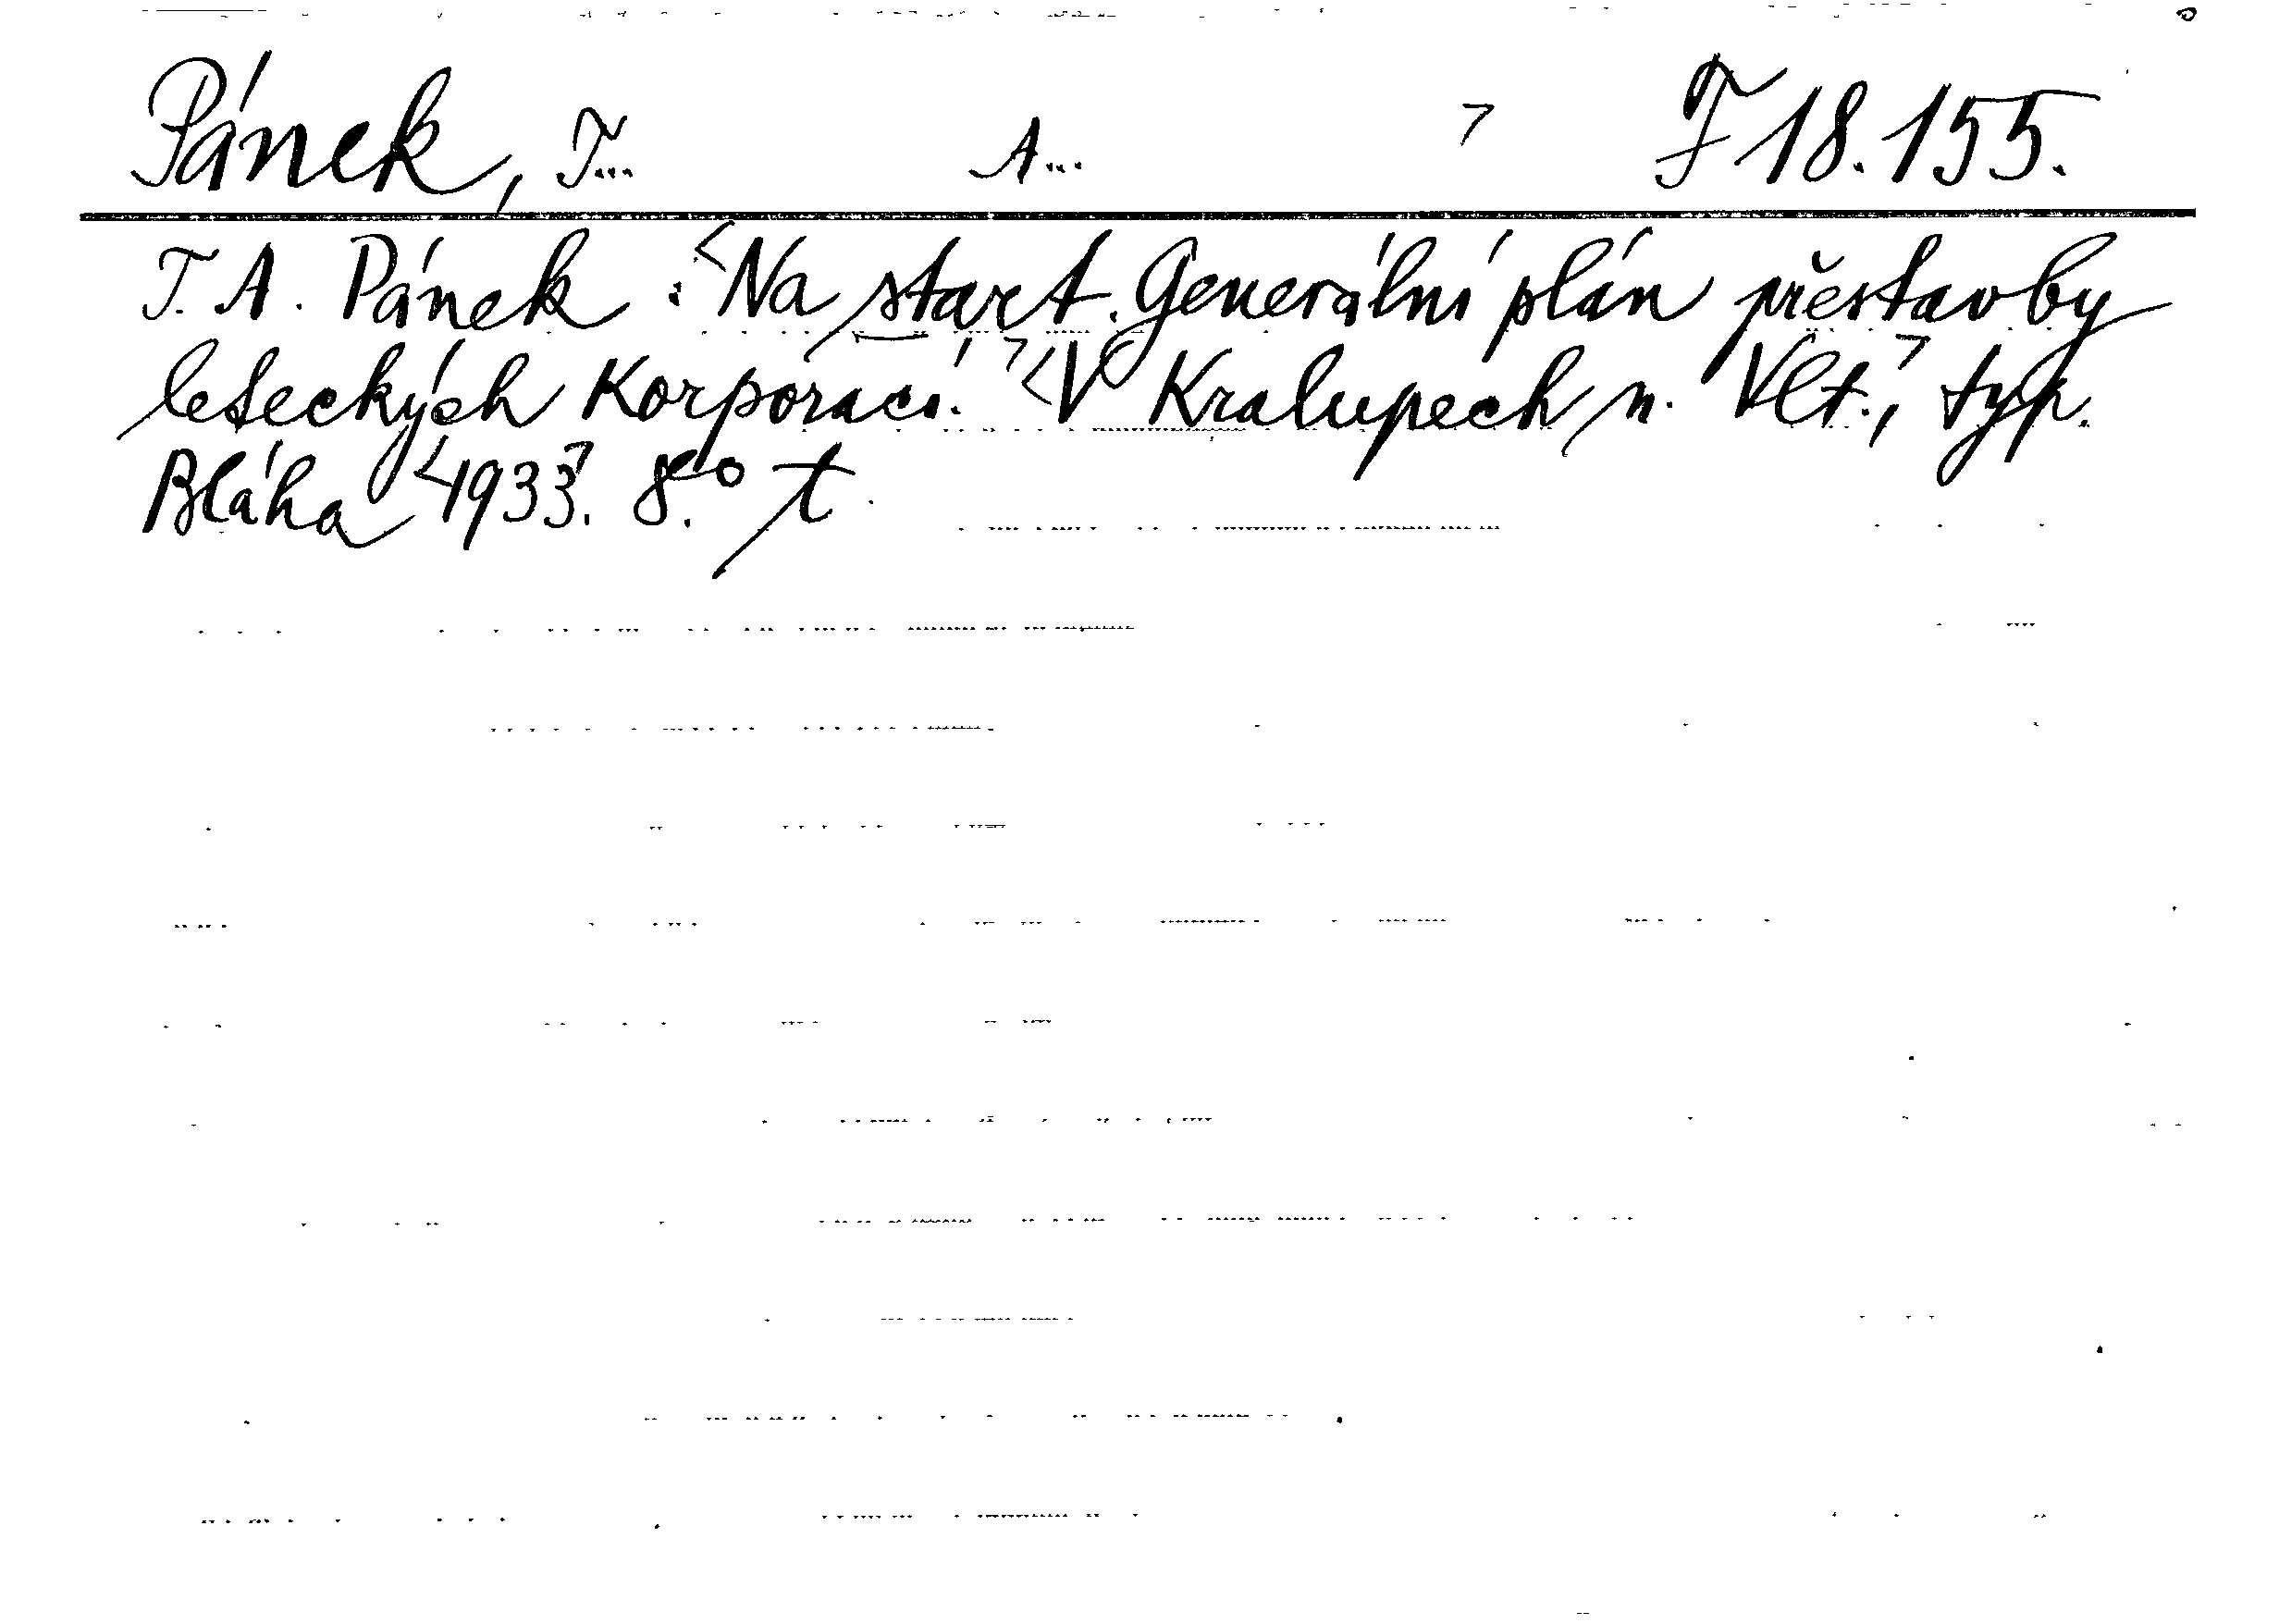 Pánek, T... A... > F 18.155.
T. A. Pánek : <Na start. Generální plán přestavby
leteckých korporací.> <V Kralupech n. Vlt.,> typ.
Bláha <1933>. 8.° t.